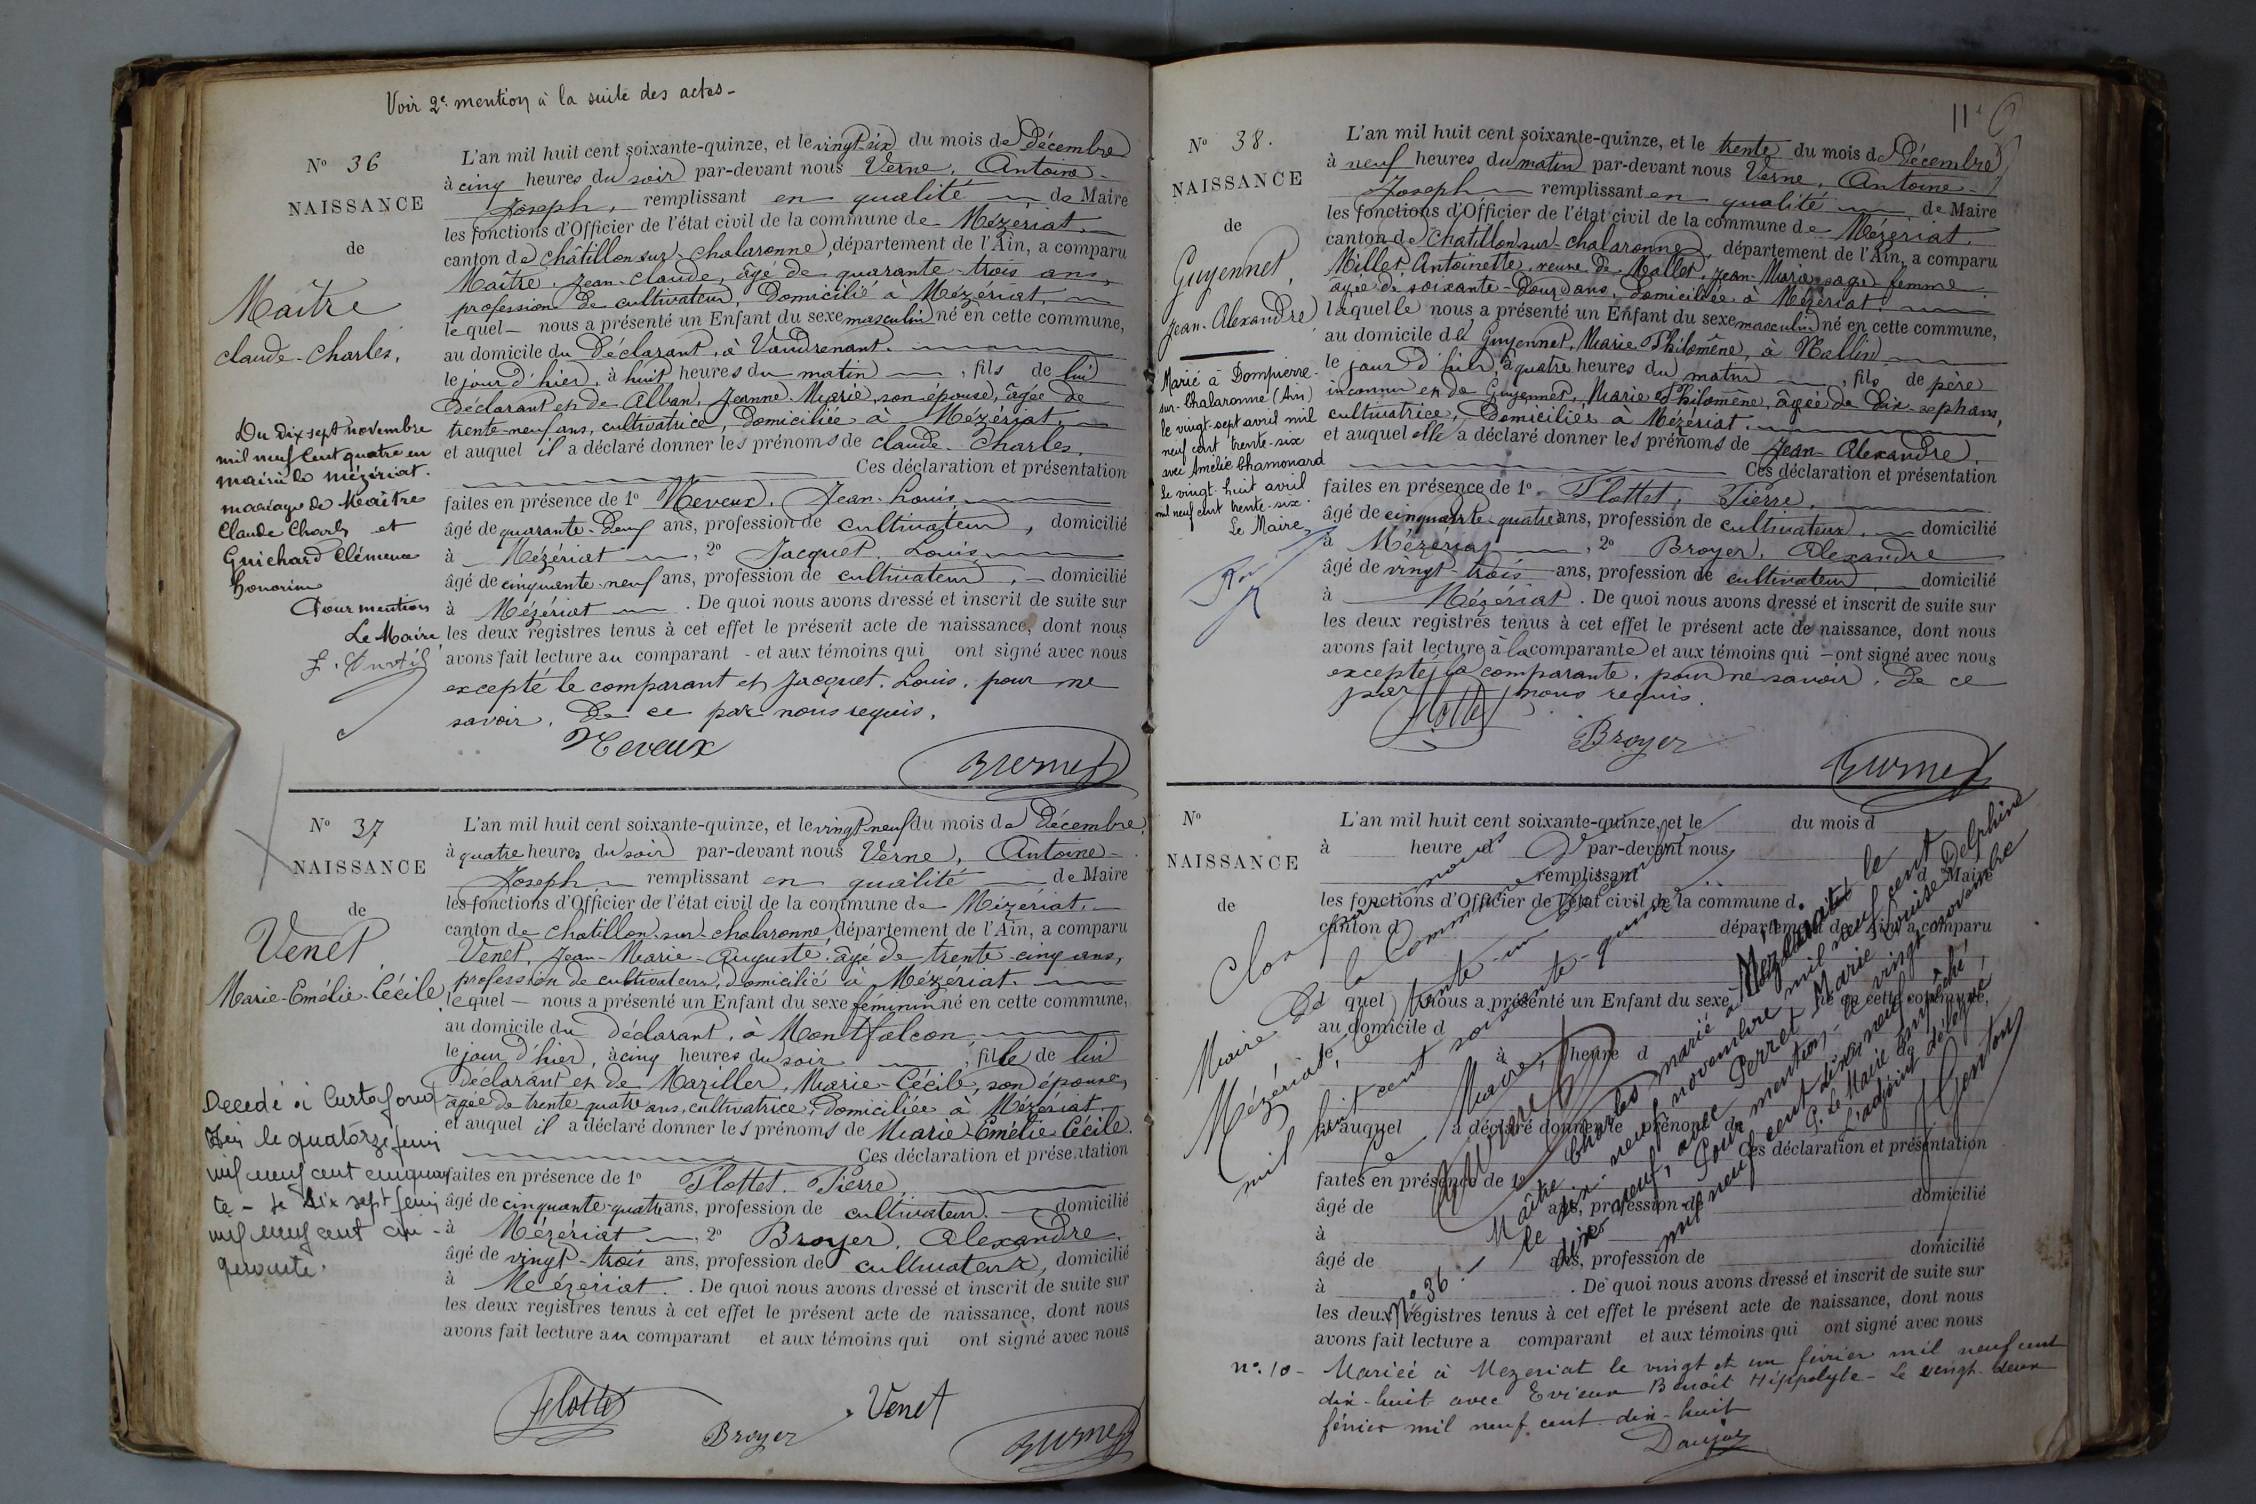 Voir 2e mention à la suite des actes -
No 36
NAISSANCE
de
Maître
Claude-Charles.
L'an mil huit cent soixante-quinze, et le vingt-six du mois de Décembre
à cinq heures du soir par-devant nous Verne, Antoine-
Joseph, remplissant en qualité de Maire
les fonctions d'Officier de l'état civil de la commune de Mézériat.
canton de châtillon sur chalaronne, département de l'Ain, a comparu
Maître, Jean-Claude, âgé de quarante-trois ans,
profession de cultivateur, Domicilié à Mézériat,
lequel nous a présenté un Enfant du sexe masculin né en cette commune,
au domicile du Déclarant, à Vaudrenant.
le jour d'hier, à huit heures du matin, fils de lui
Déclarant et de Alban, Jeanne-Marie, son épouse, âgée de
trente-neuf ans, cultivatrice, Domiciliée à Mézériat,
et auquel il a déclaré donner les prénoms de claude-Charles.
Ces déclaration et présentation
faites en présence de 1o Neveux, Jean-Louis
âgé de quarante-deux ans, profession de cultivateur, domicilié
à Mézériat, 2o Jacquet, Louis
âgé de cinquante-neuf ans, profession de cultivateur, domicilié
à Mézériat. De quoi nous avons dressé et inscrit de suite sur
les deux registres tenus à cet effet le présent acte de naissance, dont nous
avons fait lecture au comparant et aux témoins qui ont signé avec nous
excepté le comparant et Jacquet, Louis, pour ne
savoir, De ce par nous requis.
Neveux
Verne
Du dix sept novembre
mil neuf cent quatre en
mairie de Mézériat.
mariage de Maître
Claude Charles et
Guichard Clémence
Honorine
Pour mention
Le Maire,
No 37
NAISSANCE
de
Venet
Marie-Emélie-Cécile
L'an mil huit cent soixante-quinze, et le vingt-neuf du mois de Décembre,
à quatre heures du soir par-devant nous Verne, Antoine-
Joseph remplissant en qualité de Maire
les fonctions d'Officier de l'état civil de la commune de Mézériat.
canton de chatillon-sur-chalaronne, département de l'Ain, a comparu
Venet, Jean-Marie-Auguste, âgé de trente-cinq ans,
profession de cultivateur, domicilié à Mézériat.
lequel nous a présenté un Enfant du sexe féminin né en cette commune,
au domicile du déclarant, à Montfalcon,
le jour d'hier, à cinq heures du soir, fille de lui
Déclarant et de Mariller, Marie-Cécile, son épouse,
âgée de trente-quatre ans, cultivatrice, domiciliée à Mézériat
et auquel il a déclaré donner les prénoms de Marie-Emélie-Cécile.
Ces déclaration et présentation
faites en présence de 1o Flottet, Pierre
âgé de cinquante-quatre ans, profession de cultivateur domicilié
à Mézériat, 2o Broyer, Alexandre,
âgé de vingt-trois ans, profession de cultivateur, domicilié
à Mézériat. De quoi nous avons dressé et inscrit de suite sur
les deux registres tenus à cet effet le présent acte de naissance, dont nous
avons fait lecture au comparant et aux témoins qui ont signé avec nous
Flottet
Broyer
Venet
Verne
Decedé à Curtafond
Ain le quatorze juin
mil neuf cent cinquan
te - le dix sept juin
mil neuf cent cin-
quante.
11
No 38.
NAISSANCE
de
Guyennet,
Jean-Alexandre
L'an mil huit cent soixante-quinze, et le trente du mois de Décembre
à neuf heures du matin par-devant nous Verne, Antoine-
Joseph remplissant en qualité de Maire
les fonctions d'Officier de l'état civil de la commune de Mézériat.
canton de Chatillon-sur-chalaronne, département de l'Ain, a comparu
Millet, Antoinette, veuve de Mallet, Jean-Marie, sage femme
âgée de soixante-douze ans, domiciliée à Mézériat.
laquelle nous a présenté un Enfant du sexe masculin né en cette commune,
au domicile de Guyennet, Marie-Philomène, à Mallin
le jour d'hier, à quatre heures du matin, fils de père
inconnu et de Guyennet, Marie-Philomène, âgée de dix-sept ans,
cultivatrice, Domiciliée à Mézériat.
et auquel elle a déclaré donner les prénoms de Jean-Alexandre.
Ces déclaration et présentation
faites en présence de 1o Flottet, Pierre,
âgé de cinquante-quatre ans, profession de cultivateur, domicilié
à Mézériat, 2o Broyer, Alexandre
âgé de vingt-trois ans, profession de cultivateur, domicilié
à Mézériat. De quoi nous avons dressé et inscrit de suite sur
les deux registres tenus à cet effet le présent acte de naissance, dont nous
avons fait lecture à la comparante et aux témoins qui ont signé avec nous
excepté la comparante, pour ne savoir, De ce
par nous requis.
Flottet
Broyer
Verne
Marié à Dompierre-
sur-Chalaronne (Ain)
le vingt-sept avril mil
neuf cent trente-six
avec Amélie Chamonard
Le vingt-huit avril
mil neuf cent trente-six.
Le Maire,
No
NAISSANCE
de
L'an mil huit cent soixante-quinze, et le du mois d
à heure d par-devant nous
remplissant d Maire
les fonctions d'Officier de l'état civil de la commune d
canton d département de l'Ain, a comparu
quel nous a présenté un Enfant du sexe né en cette commune,
au domicile d
à heure d
et auquel a déclaré donner le prénom de
Ces déclaration et présentation
faites en présence de 1o
âgé de ans, profession de domicilié
à
âgé de ans, profession de domicilié
à . De quoi nous avons dressé et inscrit de suite sur
les deux registres tenus à cet effet le présent acte de naissance, dont nous
avons fait lecture a comparant et aux témoins qui ont signé avec nous
Clos par nous
Maire de la Commune de
Mézériat, le trente-un Décembre
mil huit cent soixante-quinze
Le Maire,
A Verne
No 36 : Maître Charles marié à Mézériat le
le dix-neuf novembre mil neuf cent
dix neuf, avec Perret Marie Louise Delphine
Pour mention, le vingt novembre
mil neuf cent dix neuf
P. Le Maire empêché,
L'adjoint délégué
no. 10 - Mariée à Mezeriat le vingt et un février mil neuf cent
dix-huit avec Evieux Benoît Hippolyte - Le vingt-deux
février mil neuf cent dix-huit